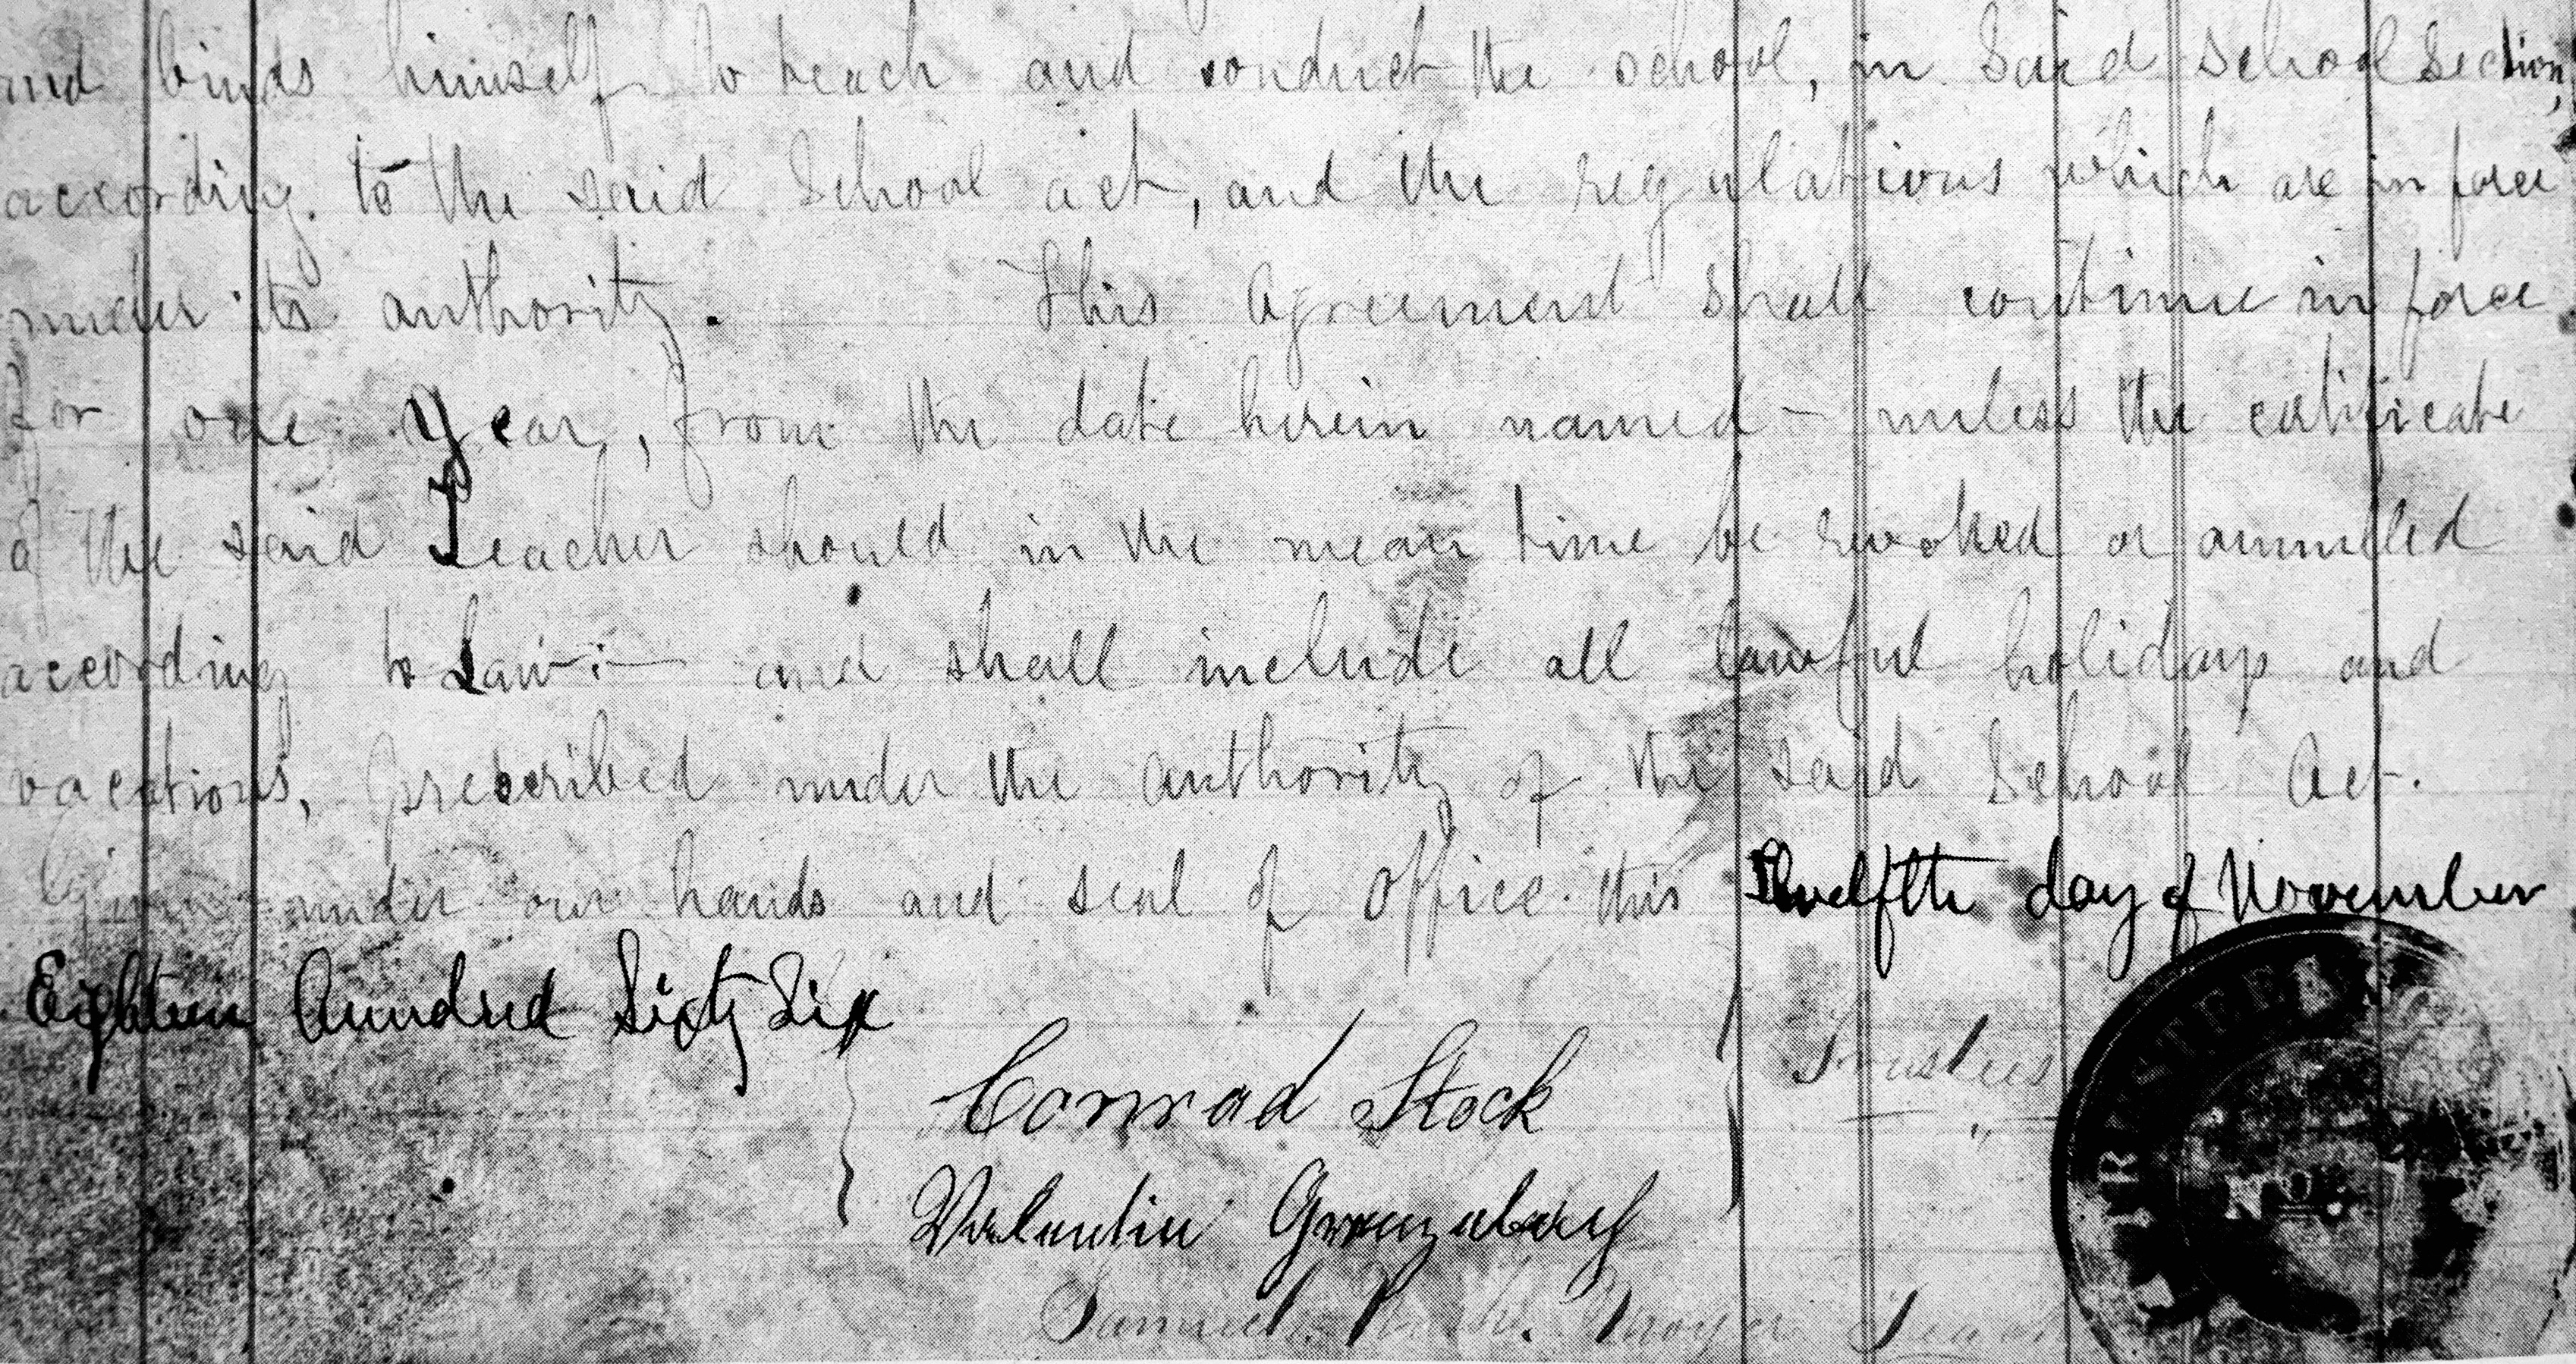 and binds himself to teach and conduct the school, in said school section,
according to the said School act, and the regulations which are in force
under its authority. This Agreement shall continue in force
for one year, from the date herein named - unless the certificate
of the said Teacher should in the mean time be revoked or annulled
according to Law :— and shall include all lawful holidays and
vacations, prescribed under the authority of the said School Act.
Given under our hands and seal of Office this Twelfth day of November
Eighteen Hundred Sixty Six
Conrad Stock Trustees
"
Valentin
Samuel Moyer
No 6